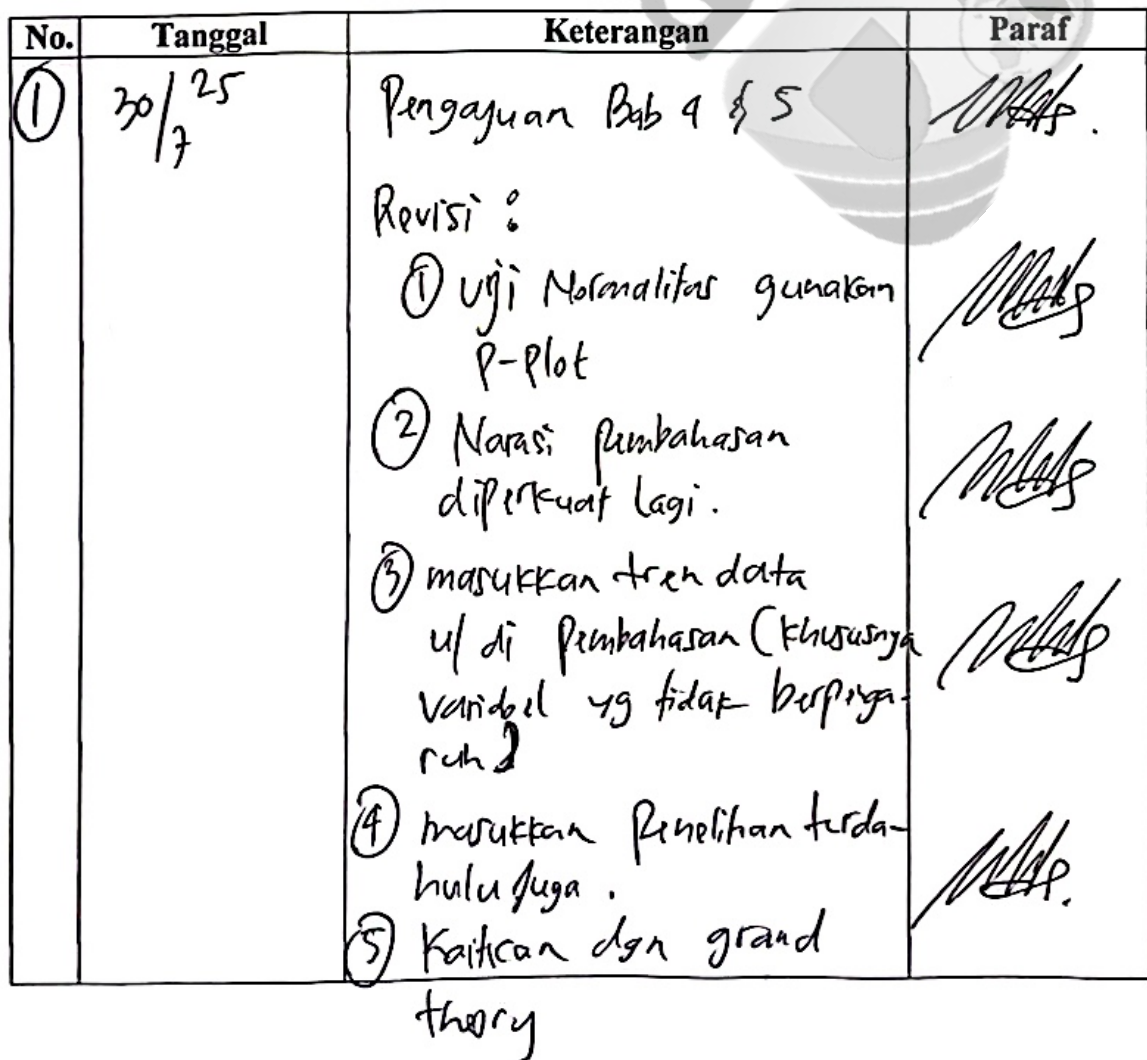 No. Tanggal Keterangan Paraf
① 30/7 25 Pengajuan Bab 4 & 5
Revisi :
① Uji Normalitas gunakan
P-Plot
② Narasi pembahasan
diperkuat lagi.
③ masukkan tren data
u/ di Pembahasan (khususnya
variabel yg tidak berpenga-
ruh)
④ masukkan Penelitian terda-
hulu juga.
⑤ Kaitkan dgn grand
theory